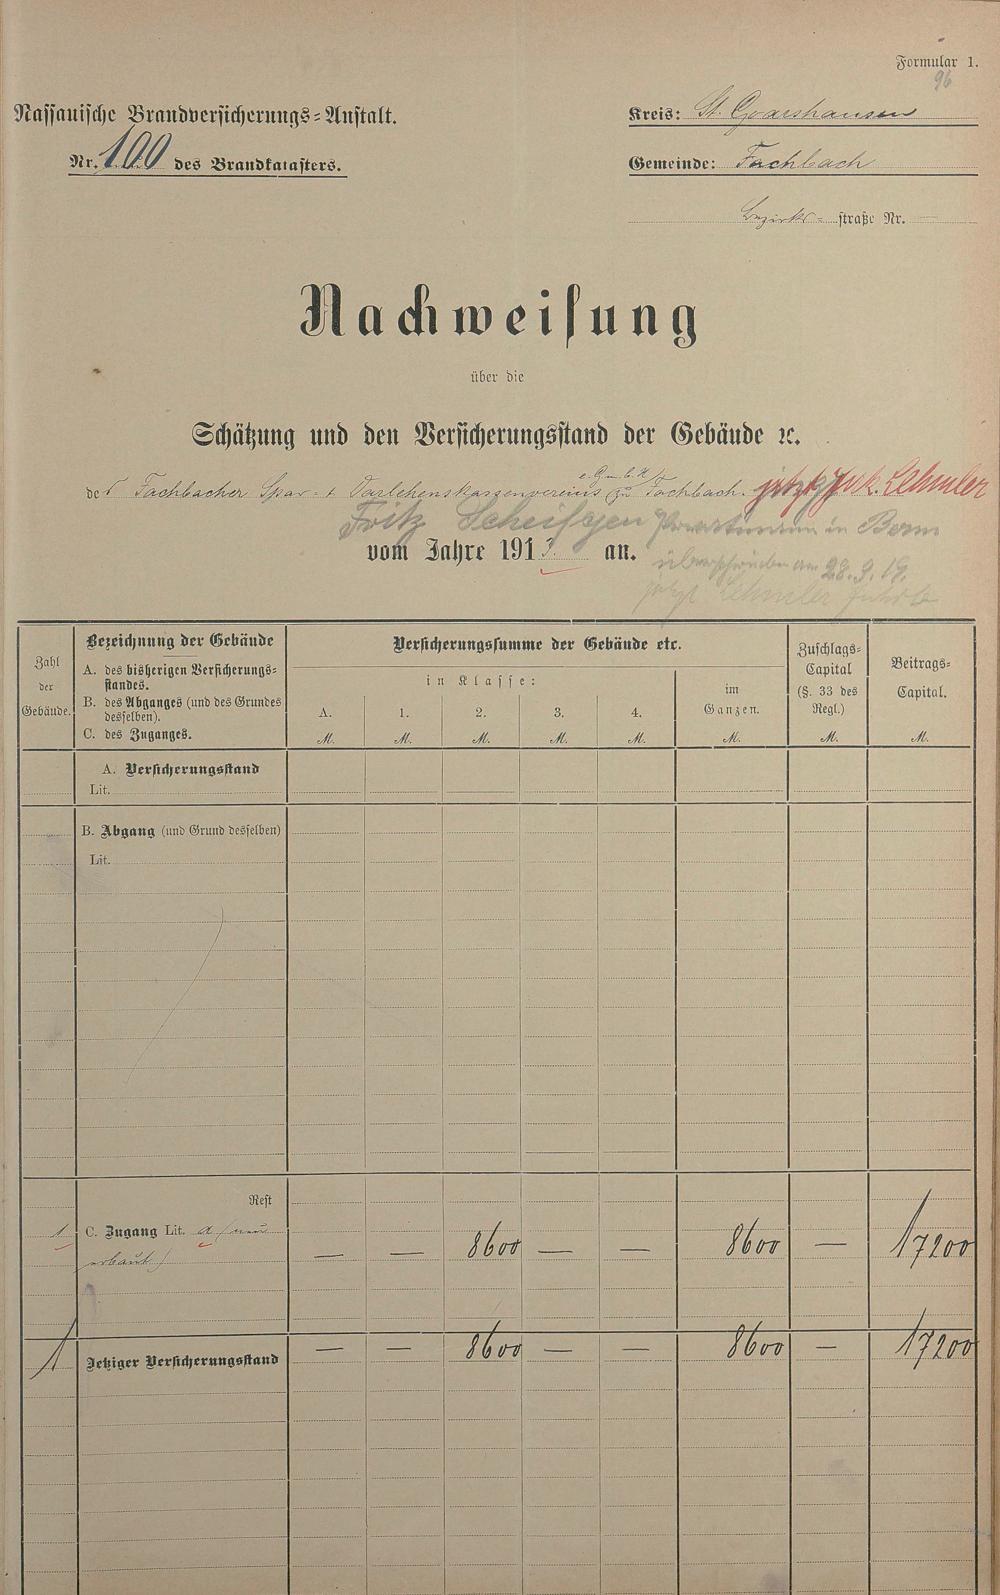 Formular 1.
96
Nassauische Brandversicherungs=Anstalt.
Nr. 100 des Brandkatasters.
Kreis: St. Goarshausen
Gemeinde: Fachbach
Bezirks= straße Nr. —
Nachweisung
über die
Schätzung und den Versicherungsstand der Gebäude ꝛc.
e. G. m. b. H.
des Fachbacher Spar- + Darlehenskassenvereins zu Fachbach. jetzt Lehmler
Fritz Scheifgen in
vom Jahre 1913 an.
überschrieben am 28.9.19.
jetzt Lehmler
Zahl der Gebäude.
Bezeichnung der Gebäude
A. des bisherigen Versicherungs=
standes.
B. des Abganges (und des Grundes
desselben).
C. des Zuganges.
Versicherungssumme der Gebäude etc.
in Klasse:
A. 1. 2. 3. 4.
im Ganzen.
Zuschlags=
Capital
(§. 33 des
Regl.)
Beitrags=
Capital.
M. M. M. M. M. M. M. M.
A. Versicherungsstand
Lit.
B. Abgang (und Grund desselben)
Lit.
Rest
1 C. Zugang Lit. a (neu
erbaut) — — 8600 — — 8600 — 17200
1 Jetziger Versicherungsstand — — 8600 — — 8600 — 17200